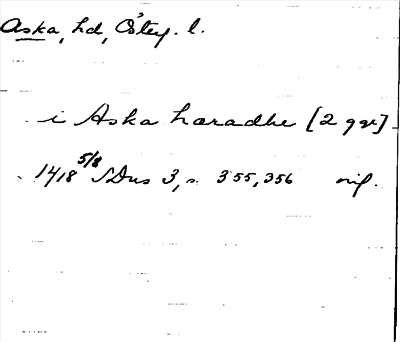 Aska, hd, Östeg. l.
i Aska hæradhe [2 ggr]
1418 5/8 SDns 3, s. 355, 356 orig.